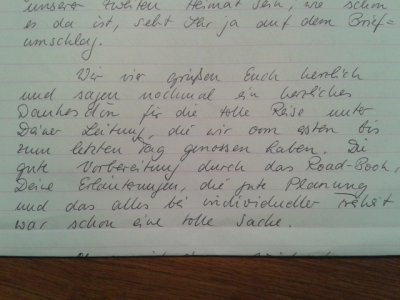 unserer zweiten Heimat sein, wie schön
es da ist, seht Ihr ja auf dem Brief-
umschlag.
Wir vier grüßen Euch herzlich
und sagen nochmal ein herzliches
Dankeschön für die tolle Reise unter
Deiner Leitung, die wir vom ersten bis
zum letzten Tag genossen haben. Die
gute Vorbereitung durch das Road-Book,
Deine Erläuterungen, die gute Planung
und das alles bei individueller Freiheit
war schon eine tolle Sache.